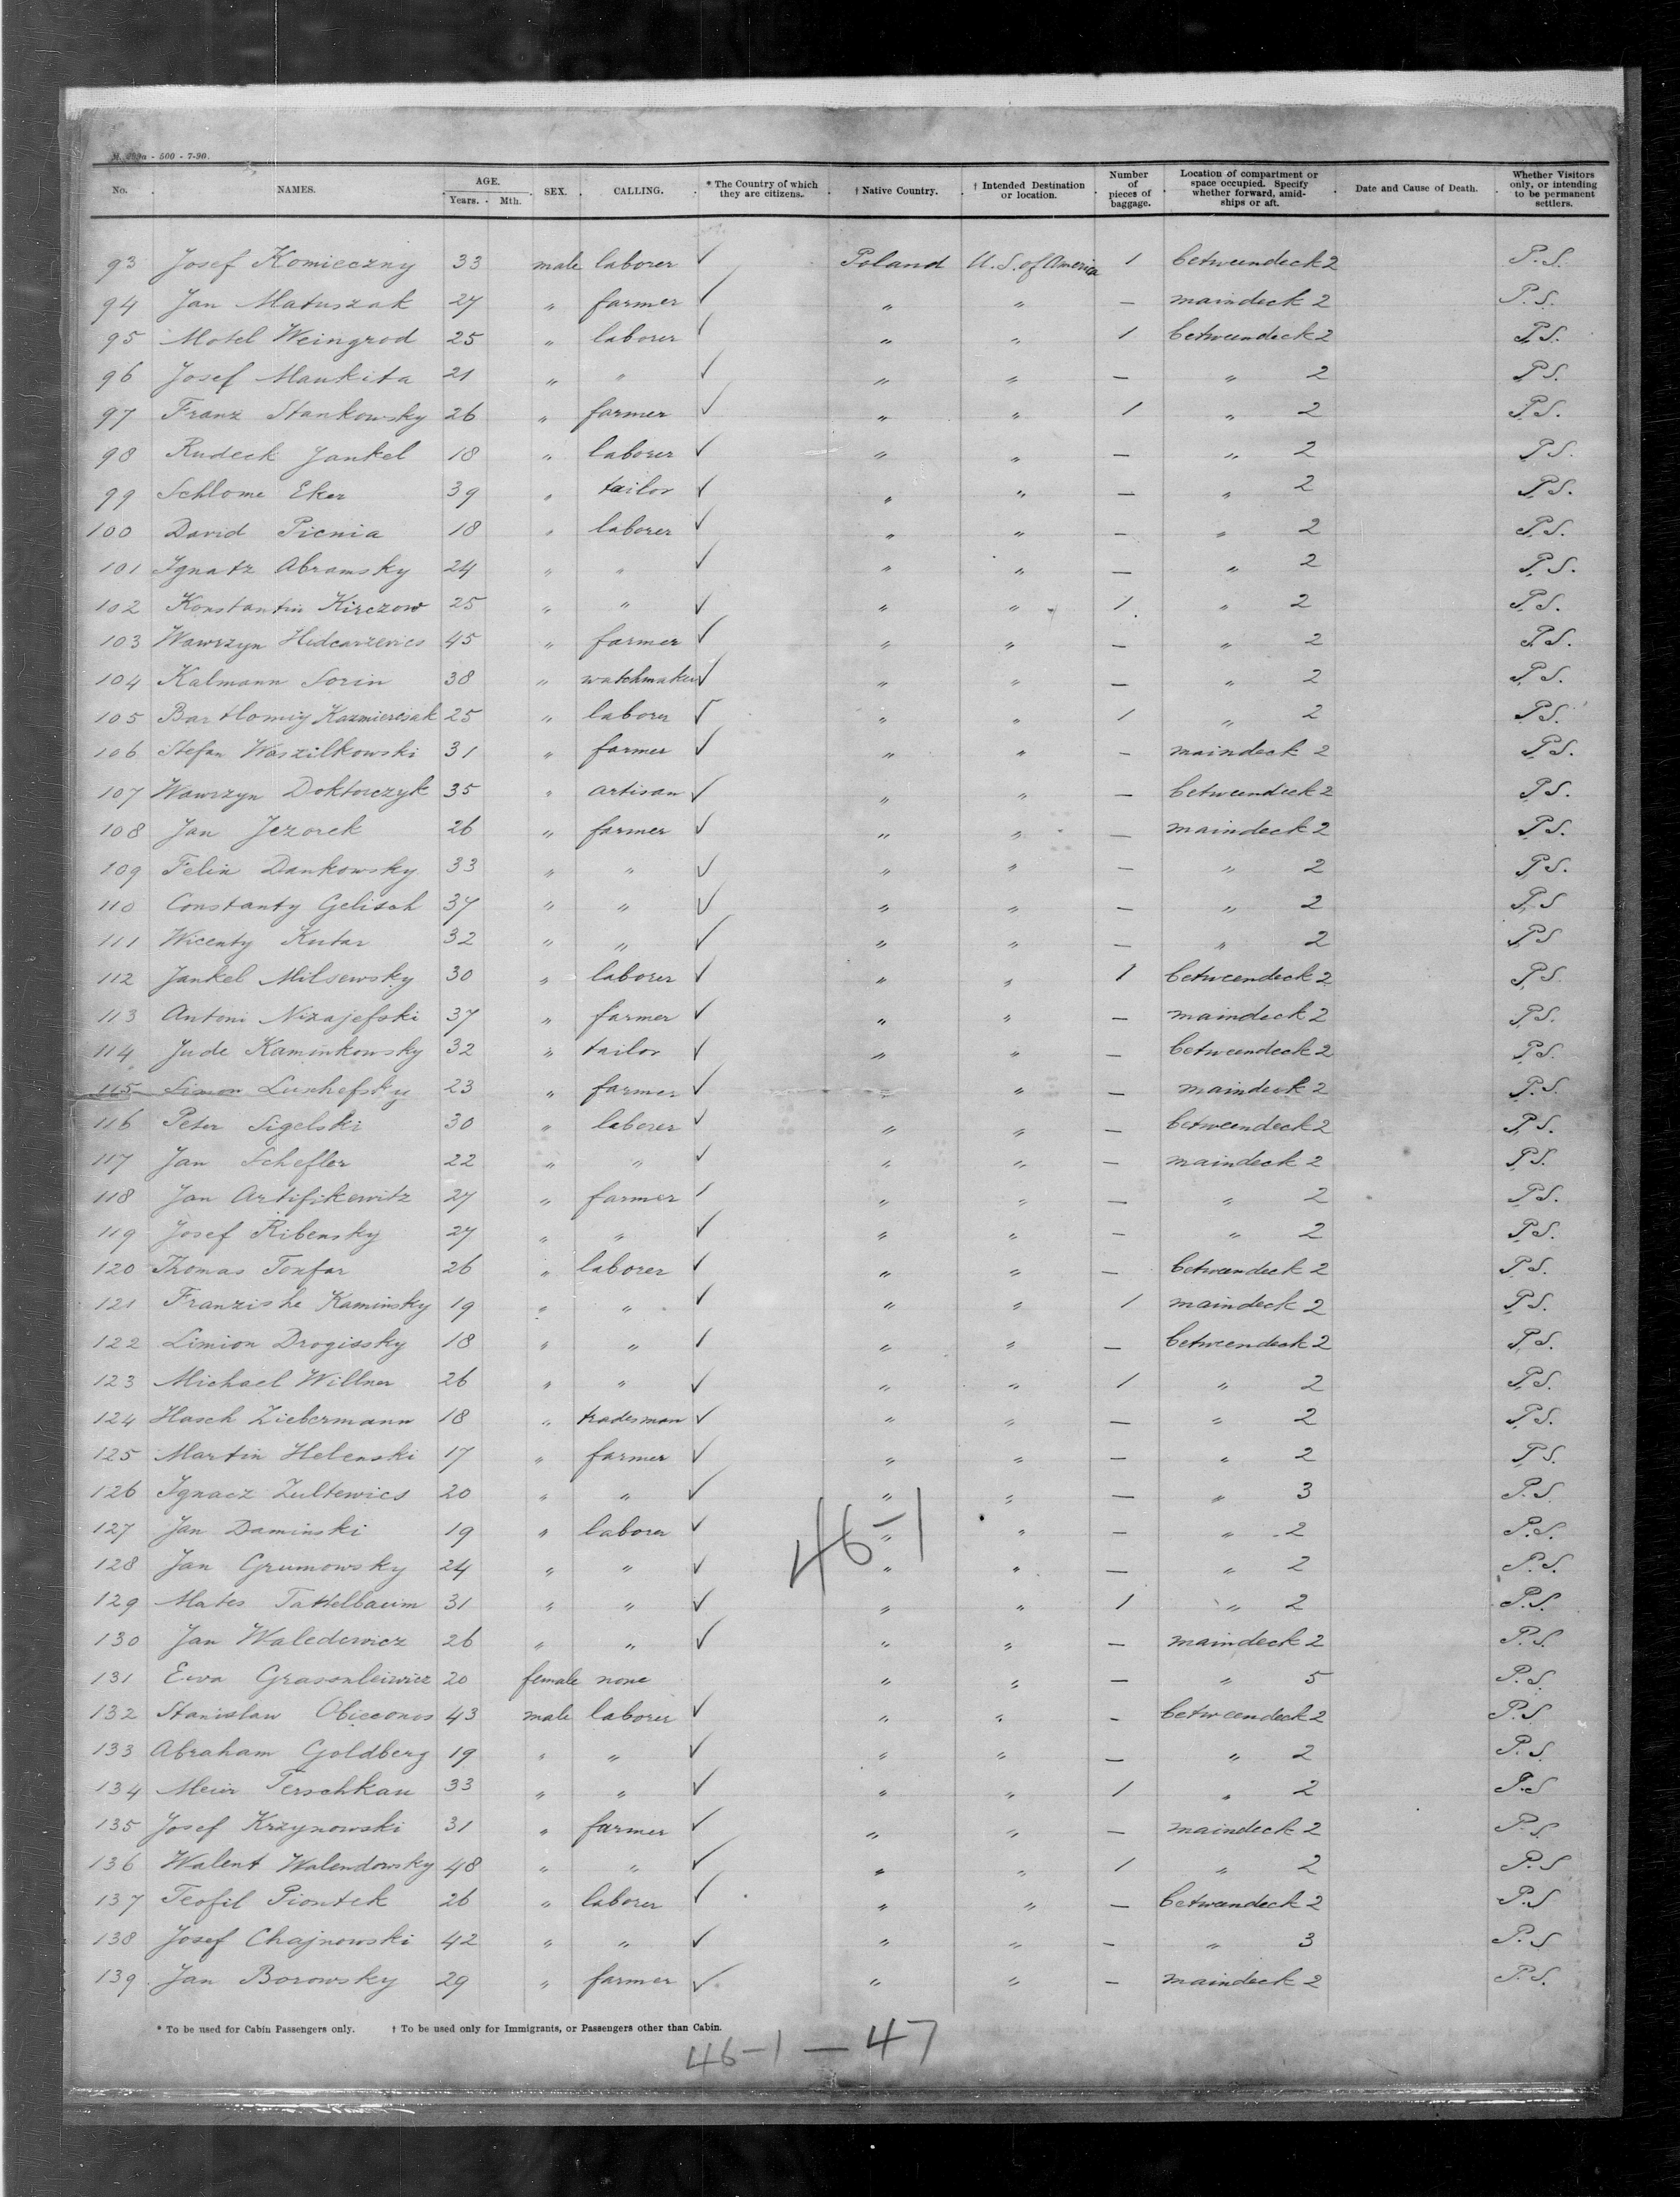 M. 209a - 500 - 7-90.
No. NAMES. AGE. Years. Mth. SEX. CALLING. * The Country of which they are citizens. † Native Country. † Intended Destination or location. Number of pieces of baggage. Location of compartment or space occupied. Specify whether forward, amidships or aft. Date and Cause of Death. Whether Visitors only, or intending to be permanent settlers.
93 Josef Komieczny 33 male laborer ✓ Poland U.S. of America 1 betweendeck 2 P.S.
94 Jan Matuszak 27 " farmer ✓ " " — maindeck 2 P.S.
95 Motel Weingrod 25 " laborer ✓ " " 1 betweendeck 2 P.S.
96 Josef Mankita 21 " " ✓ " " — " 2 P.S.
97 Franz Stankowsky 26 " farmer ✓ " " 1 " 2 P.S.
98 Rudeck Jankel 18 " laborer ✓ " " — " 2 P.S.
99 Schlome Eker 39 " tailor ✓ " " — " 2 P.S.
100 David Picnia 18 " laborer ✓ " " — " 2 P.S.
101 Ignatz Abramsky 24 " " ✓ " " — " 2 P.S.
102 Konstantin Kirczow 25 " " ✓ " " 1 " 2 P.S.
103 Wawrzyn 45 " farmer ✓ " " — " 2 P.S.
104 Kalmann Sorin 38 " watchmaker ✓ " " — " 2 P.S.
105 Bartlomiy Kazmierciak 25 " laborer ✓ " " 1 " 2 P.S.
106 Stefan Waszilkowski 31 " farmer ✓ " " — maindeck 2 P.S.
107 Wawrzyn Doktorczyk 35 " artisan ✓ " " — betweendeck 2 P.S.
108 Jan Jezorek 26 " farmer ✓ " " — maindeck 2 P.S.
109 Felin Dankowsky 33 " " ✓ " " — " 2 P.S.
110 Constanty Gelisch 37 " " ✓ " " — " 2 P.S
111 Wicenty Kutar 32 " " ✓ " " — " 2 P.S
112 Jankel Milsewsky 30 " laborer ✓ " " 1 betweendeck 2 P.S.
113 Antoni Nizajefski 37 " farmer ✓ " " — maindeck 2 P.S.
114 Jude Kaminkowsky 32 " tailor ✓ " " — betweendeck 2 P.S.
115 Simon Luschefsky 23 " farmer ✓ " — maindeck 2 P.S.
116 Peter Sigelski 30 " laborer ✓ " " — betweendeck 2 P.S.
117 Jan Schefler 22 " " ✓ " " — maindeck 2 P.S.
118 Jan Artifikewitz 27 " farmer ✓ " " — " 2 P.S.
119 Josef Ribensky 27 " " ✓ " " — " 2 P.S.
120 Thomas Tonfar 26 " laborer ✓ " " — betweendeck 2 P.S.
121 Franziske Kaminsky 19 " " ✓ " " 1 maindeck 2 P.S.
122 Limion Drogissky 18 " " ✓ " " — betweendeck 2 P.S.
123 Michael Willner 26 " " ✓ " " 1 " 2 P.S.
124 Hasch Liebermann 18 " tradesman ✓ " " — " 2 P.S.
125 Martin Helenski 17 " farmer ✓ " " — " 2 P.S.
126 Ignacz Zultewics 20 " " ✓ " " — " 3 P.S.
127 Jan Daminski 19 " laborer ✓ " " — " 2 P.S.
46-1
128 Jan Grumowsky 24 " " ✓ " " — " 2 P.S.
129 Mates Tattelbaum 31 " " ✓ " " 1 " 2 P.S.
130 Jan Waledewicz 26 " " ✓ " " — maindeck 2 P.S.
131 Ewa 20 female none " " — " 5 P.S.
132 Stanislaw 43 male laborer ✓ " " — betweendeck 2 P.S.
133 Abraham Goldberg 19 " " ✓ " " — " 2 P.S.
134 Meier Terschkau 33 " " ✓ " " 1 " 2 P.S
135 Josef Krzynowski 31 " farmer ✓ " " — maindeck 2 P.S.
136 Walent Walendowsky 48 " " ✓ " " 1 " 2 P.S
137 Teofil Piontek 26 " laborer ✓ " " — betweendeck 2 P.S
138 Josef Chajnowski 42 " " ✓ " " — " 3 P.S
139 Jan Borowsky 29 " farmer ✓ " " — maindeck 2 P.S.
* To be used for Cabin Passengers only. † To be used only for Immigrants, or Passengers other than Cabin.
46-1 — 47